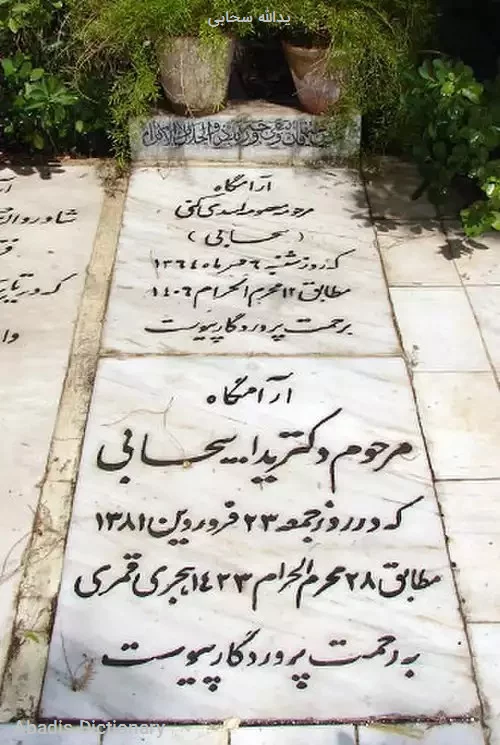 یدالله سحابی
آرامگاه
مرحومه معصومه اسدی کنی
(سحابی)
که روز شنبه ۶ مهرماه ۱۳۶۴
مطابق ۱۲ محرم الحرام ۱۴۰۶
برحمت پروردگار پیوست
آرامگاه
مرحوم دکتر یدا... سحابی
که در روز جمعه ۲۳ فروردین ۱۳۸۱
مطابق ۲۸ محرم الحرام ۱۴۲۳ هجری قمری
به رحمت پروردگار پیوست
شاهروان
که در تاریخ
Abadis Dictionary